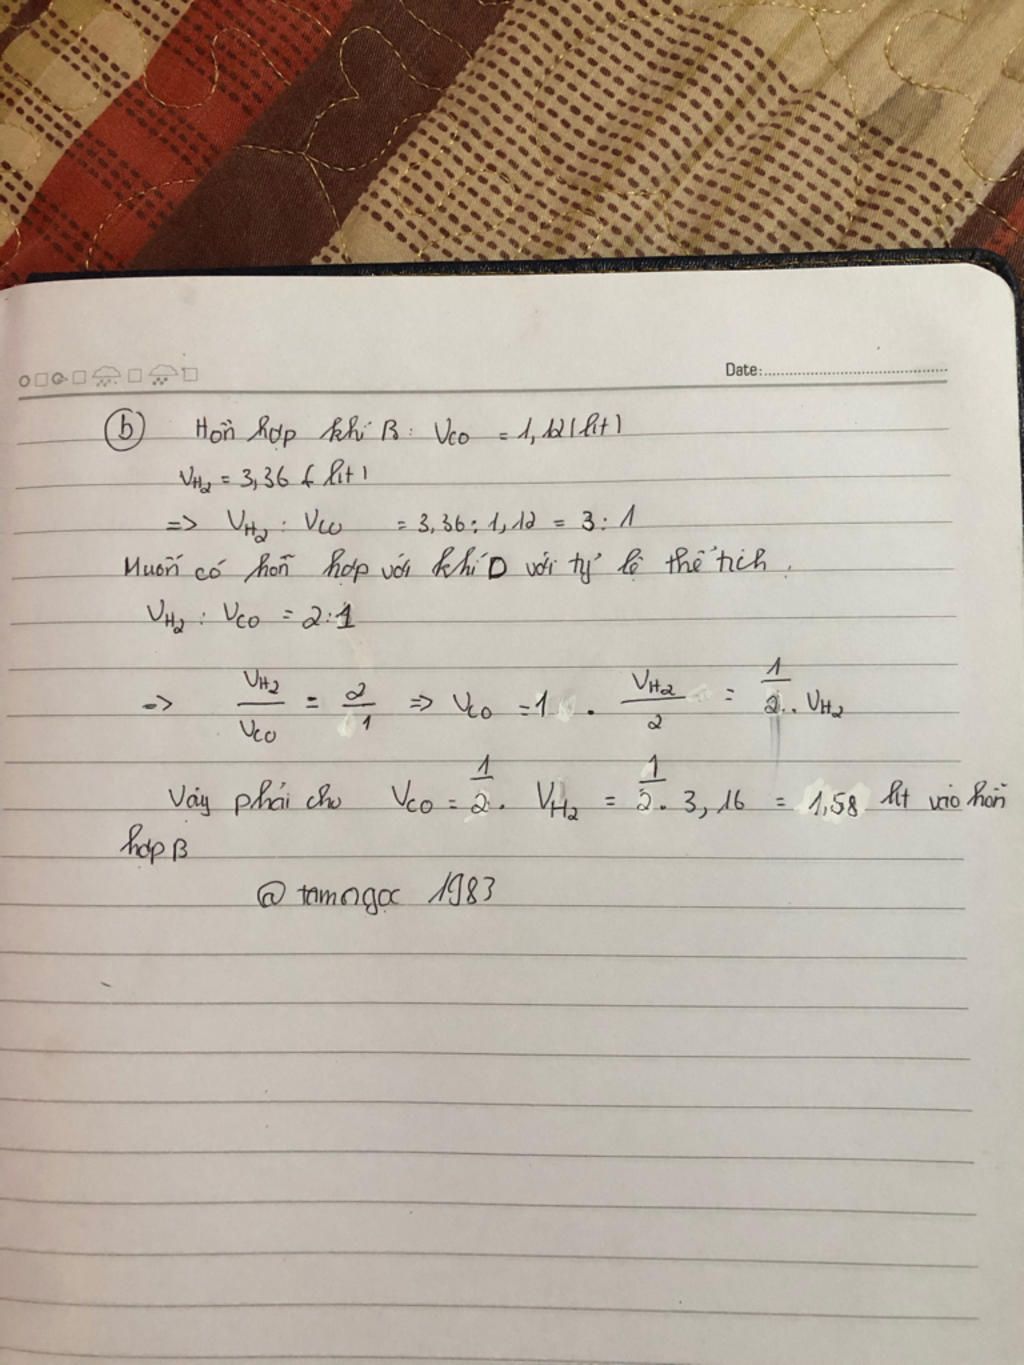 Date:
b Hỗn hợp khí B: VCO = 1,12 (lít)
VH2 = 3,36 ( lít)
=> VH2 : VCO = 3,36 : 1,12 = 3 : 1
Muốn có hỗn hợp với khí D với tỷ lệ thể tích.
VH2 : VCO = 2:1
=> VH2/VCO = 2/1 => VCO = 1 . VH2/2 = 1/2 . VH2
Vậy phải cho VCO = 1/2 . VH2 = 1/2 . 3,16 = 1,58 lít vào hỗn
hợp B
@ tamngoc 1983